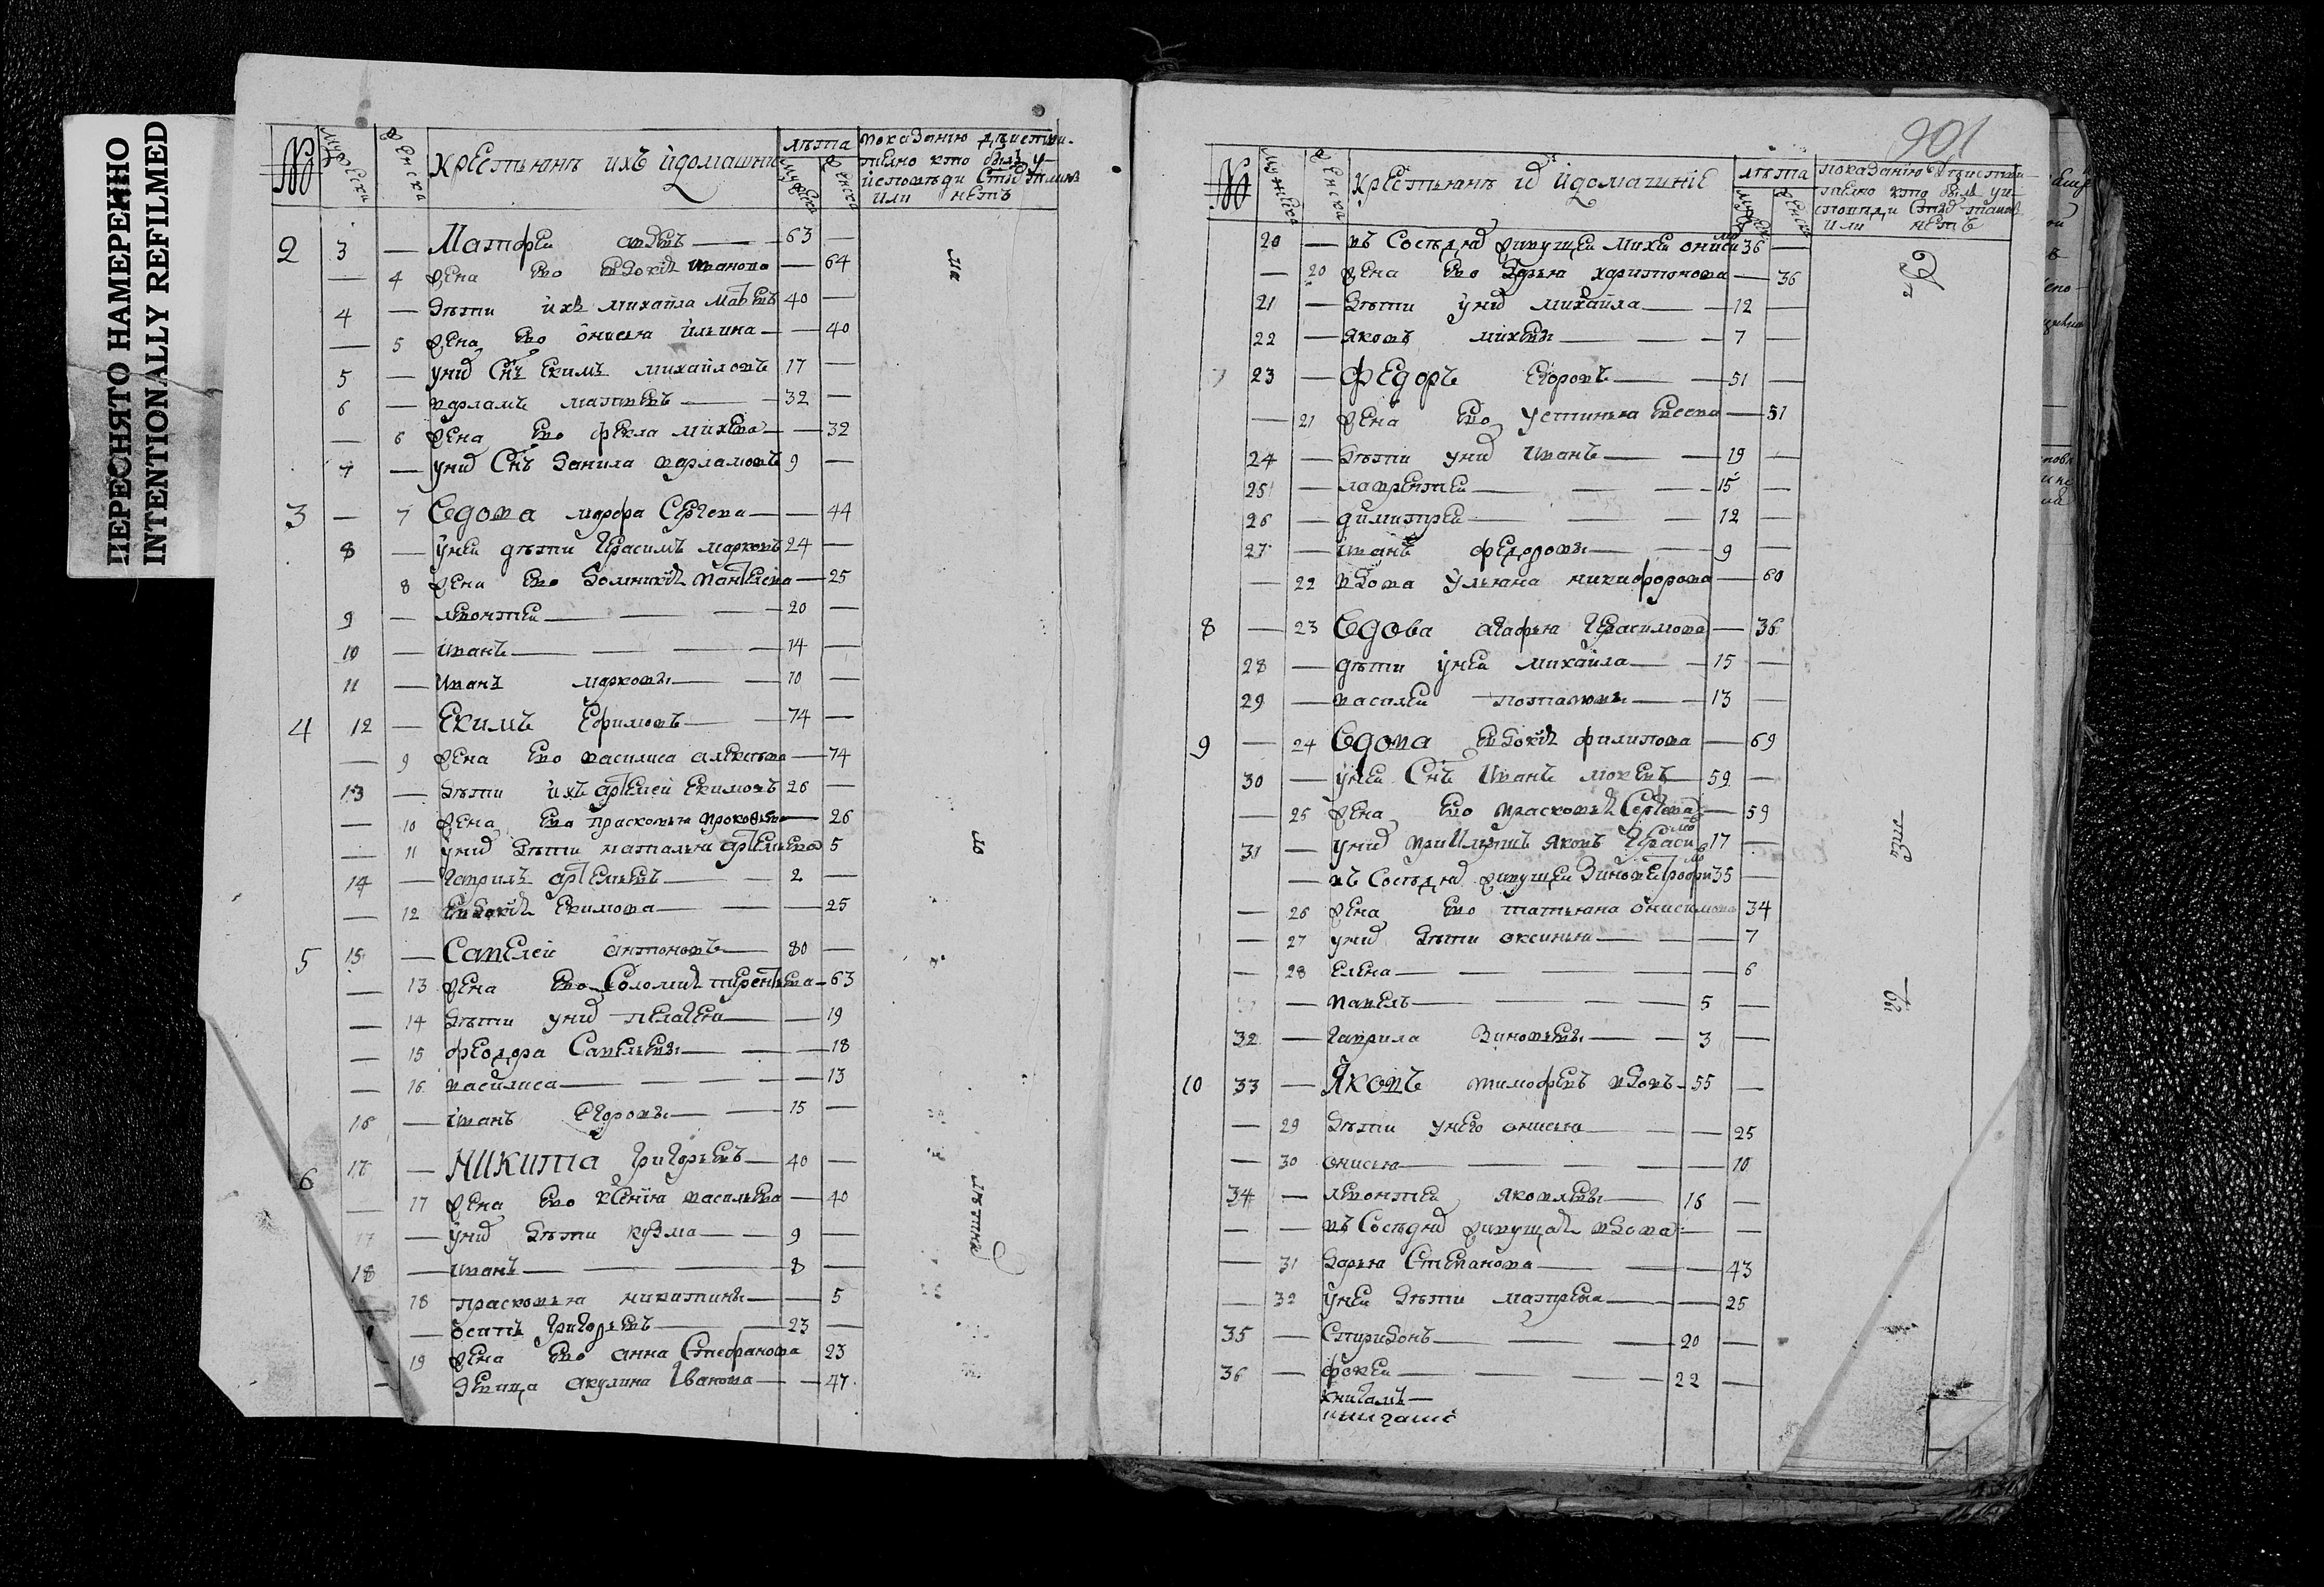 ПЕРЕСНЯТО НАМЕРЕННО
INTENTIONALLY REFILMED
№ мужеска женска крестьянъ ихъ идомашни лѣта
мужеска женска
или нетъ
2 3 — Матфеи — 63 —
— 4 жена ево евдокия иванова — 64
4 — дѣти ихъ михаила матвевъ 40 —
— 5 жена ево онисья ильина — 40
5 — унихъ снъ екимъ михаиловъ 17 —
6 — варламъ матвевъ — 32 —
— 6 жена ево фекла михева — 32
7 — унихъ снъ данила варламовъ 9 —
3 — 7 Вдова марфа Сергева — 44
8 — унеи дѣти герасимъ марковъ 24 —
8 жена ево домникия пантелева — 25
9 — левонтеи — 20 —
10 — иванъ — 14 —
11 — иванъ марковы — 10 —
4 12 — Екимъ Ефимовъ — 74 —
— 9 жена ево василиса алексеева — 74
13 — дѣти ихъ артемеи екимовъ 26 —
— 10 жена ево прасковья прокофьева — 26
— 11 унихъ дѣти наталья артемьева 5
14 — гаврилъ артемьевъ — 2 —
— 12 евдокия екимова — 25
5 15 — Савелеи антоновъ — 80 —
— 13 жена ево Соломия терентьева — 63
— 14 дѣти унихъ пелагея — 19
— 15 феодора Савельевы — 18
— 16 василиса — 13
16 — иванъ егоровы — 15 —
6 17 — Никита григорьевъ — 40 —
— 17 жена ево ксения васильева — 40
17 — унихъ дѣти кузма — 9 —
18 — иванъ — 8 —
— 18 прасковья никитины — 5
— осипъ григорьевъ — 23 —
19 жена ево анна Стефанова 23
— девица акулина Iванова — 47
901
№ мужеска женска крестьянъ идомашние лѣта
женска
или нетъ
20 — въ Соседяхъ живущеи михеи ониси мо 36 —
— 20 жена ево дарья харитонова — 36
21 — дѣти унихъ михаила — 12 —
22 — яковъ михевы — 7 —
7 23 — Федоръ егоровъ — 51 —
— 21 жена ево устинья евсева — 51
24 — дѣти унихъ иванъ — 19 —
25 — лаврентеи — 15 —
26 — димитреи — 12 —
27 — иванъ федоровы — 9 —
— 22 вдова ульяна никифорова — 60
8 — 23 Вдова агафья герасимова — 36
28 — дѣти унеи михаила — 15 —
29 — василеи потаповы — 13 —
9 — 24 Вдова евдокия филипова — 69
30 — унеи Снъ иванъ мокевъ — 59 —
— 25 жена ево прасковья Сергева — 59
31 — унихъ яковъ гераси мо 17 —
— въ Соседяхъ живущеи 35 —
— 26 жена ево татьяна онисимова 34
— 27 унихъ дѣти оксинья — 7
— 28 елена — 6
— павелъ — 5 —
32 — гаврила зиновьевы — 3 —
10 33 — Яковъ тимофевъ вдовъ — 55 —
— 29 дѣти унего онисья — 25
— 30 онисья — 10
34 — левонтеи яковлевы — 16 —
— — въ Соседяхъ живущая вдова — —
— 31 дарья Степанова — 43
— 32 унеи дѣти матрена — 25
35 — Спиридонъ — 20 —
36 — фокеи — 22 —
книгамъ —